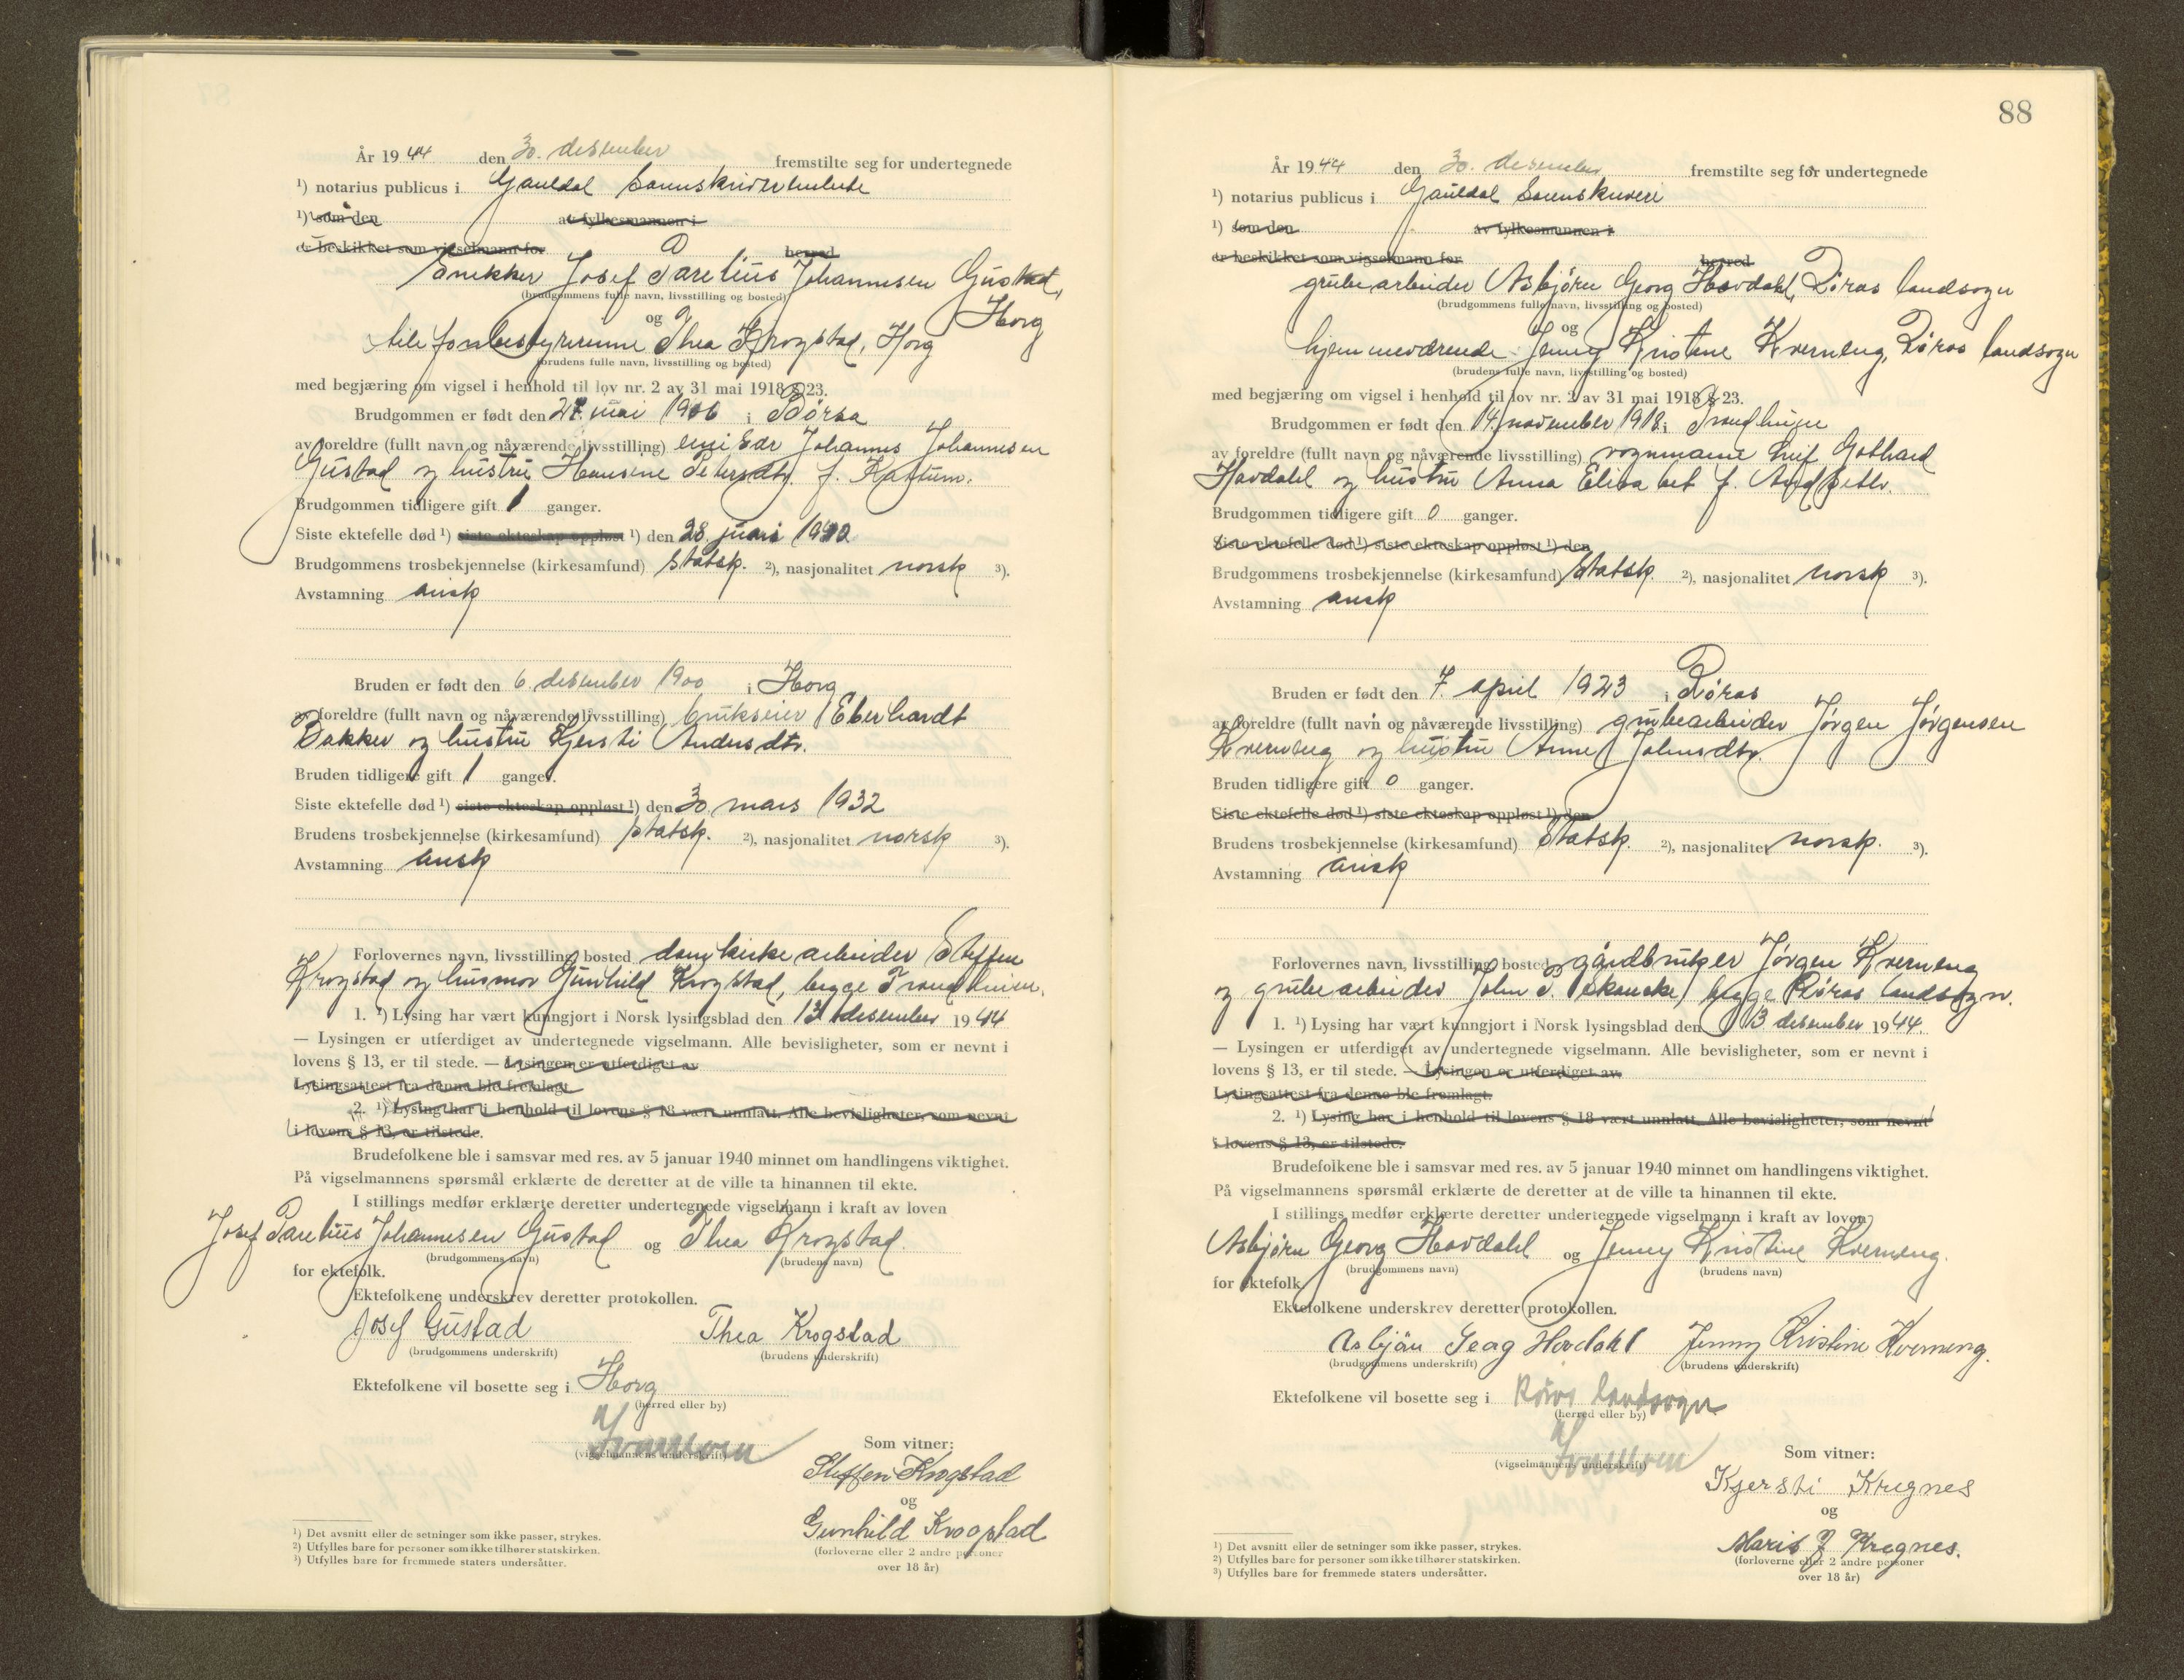 År 1944 den 30. desember fremstilte seg for undertegnede
¹) notarius publicus i Gauldal
¹) som den av fylkesmannen i
er beskikket som vigselmann for herred
Snekker Josef Parelius Johannesen Gustad,
Horg
(brudgommens fulle navn, livsstilling og bosted)
og
telefonbestyrerinne Thea Krogstad, Horg
(brudens fulle navn, livsstilling og bosted)
med begjæring om vigsel i henhold til lov nr. 2 av 31 mai 1918 § 23.
Brudgommen er født den mai i Børsa
av foreldre (fullt navn og nåværende livsstilling) Johannes Johannesen
Gustad og hustru Hansine Petersdtr. f.
Brudgommen tidligere gift 1 ganger.
Siste ektefelle død ¹) siste ekteskap oppløst ¹) den 28.
Brudgommens trosbekjennelse (kirkesamfund) Statsk. ²), nasjonalitet norsk ³).
Avstamning arisk
Bruden er født den 6. desember 1900 i Horg
av foreldre (fullt navn og nåværende livsstilling) brukseier Eberhardt
Bakker og hustru Kjersti Andersdtr.
Bruden tidligere gift 1 ganger.
Siste ektefelle død ¹) siste ekteskap oppløst ¹) den 30. mars 1932
Brudens trosbekjennelse (kirkesamfund) statsk. ²), nasjonalitet norsk ³).
Avstamning arisk
Forlovernes navn, livsstilling bosted domkirkearbeider Steffen
Krogstad og husmor Gunhild Krogstad, begge Trondheim.
1. ¹) Lysing har vært kunngjort i Norsk lysingsblad den 13 desember 1944
— Lysingen er utferdiget av undertegnede vigselmann. Alle bevisligheter, som er nevnt i
lovens § 13, er til stede. — Lysingen er utferdiget av
Lysingsattest fra denne ble fremlagt
2. ¹) Lysing har i henhold til lovens § 18 vært unnlatt. Alle bevisligheter, som nevnt
i lovens § 13, er tilstede.
Brudefolkene ble i samsvar med res. av 5 januar 1940 minnet om handlingens viktighet.
På vigselmannens spørsmål erklærte de deretter at de ville ta hinannen til ekte.
I stillings medfør erklærte deretter undertegnede vigselmann i kraft av loven
Josef Parelius Johannesen Gustad og Thea Krogstad
(brudgommens navn) (brudens navn)
for ektefolk.
Ektefolkene underskrev deretter protokollen.
Josef Gustad Thea Krogstad
(brudgommens underskrift) (brudens underskrift)
Ektefolkene vil bosette seg i Horg
(herred eller by)
(vigselmannens underskrift)
Som vitner:
Steffen Krogstad
og
Gunhild Krogstad
(forloverne eller 2 andre personer
over 18 år)
¹) Det avsnitt eller de setninger som ikke passer, strykes.
²) Utfylles bare for personer som ikke tilhører statskirken.
³) Utfylles bare for fremmede staters undersåtter.
88
År 1944 den 30. desember fremstilte seg for undertegnede
¹) notarius publicus i Gauldal Sorenskriveri
¹) som den av fylkesmannen i
er beskikket som vigselmann for herred
grubearbeider Asbjørn Georg Hovdahl, Røros landsogn
(brudgommens fulle navn, livsstilling og bosted)
og
hjemmeværende Jenny Kristine Kverneng, Røros landsogn
(brudens fulle navn, livsstilling og bosted)
med begjæring om vigsel i henhold til lov nr. 2 av 31 mai 1918 § 23.
Brudgommen er født den 14. november 1918 i Trondheim
av foreldre (fullt navn og nåværende livsstilling) vognmann Leif Gotthard
Hovdahl og hustru Anna Elisabet f.
Brudgommen tidligere gift 0 ganger.
Siste ektefelle død ¹) siste ekteskap oppløst ¹) den
Brudgommens trosbekjennelse (kirkesamfund) Statsk. ²), nasjonalitet norsk ³).
Avstamning arisk
Bruden er født den 7. april 1923 i Røros
av foreldre (fullt navn og nåværende livsstilling) grubearbeider Jørgen Jørgensen
Kverneng og hustru Anne Johnsdtr.
Bruden tidligere gift 0 ganger.
Siste ektefelle død ¹) siste ekteskap oppløst ¹) den
Brudens trosbekjennelse (kirkesamfund) Statsk. ²), nasjonalitet norsk. ³).
Avstamning arisk
Forlovernes navn, livsstilling bosted gårdbruker Jørgen Kverneng
og grubearbeider John J. Skancke, begge Røros landsogn.
1. ¹) Lysing har vært kunngjort i Norsk lysingsblad den 13 desember 1944.
— Lysingen er utferdiget av undertegnede vigselmann. Alle bevisligheter, som er nevnt i
lovens § 13, er til stede. — Lysingen er utferdiget av
Lysingsattest fra denne ble fremlagt.
2. ¹) Lysing har i henhold til lovens § 18 vært unnlatt. Alle bevisligheter, som nevnt
i lovens § 13, er tilstede.
Brudefolkene ble i samsvar med res. av 5 januar 1940 minnet om handlingens viktighet.
På vigselmannens spørsmål erklærte de deretter at de ville ta hinannen til ekte.
I stillings medfør erklærte deretter undertegnede vigselmann i kraft av loven
Asbjørn Georg Hovdahl og Jenny Kristine Kverneng.
(brudgommens navn) (brudens navn)
for ektefolk.
Ektefolkene underskrev deretter protokollen.
Asbjørn Georg Hovdahl Jenny Kristine Kverneng.
(brudgommens underskrift) (brudens underskrift)
Ektefolkene vil bosette seg i Røros landsogn
(herred eller by)
(vigselmannens underskrift)
Som vitner:
Kjersti Kregnes
og
Marit J Kregnes.
(forloverne eller 2 andre personer
over 18 år)
¹) Det avsnitt eller de setninger som ikke passer, strykes.
²) Utfylles bare for personer som ikke tilhører statskirken.
³) Utfylles bare for fremmede staters undersåtter.